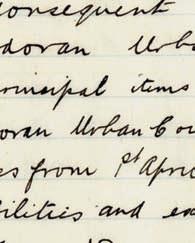 consequent
doran Urba
rincipal items
oran Urban Cou
es from 1st Apri
bilities and ex